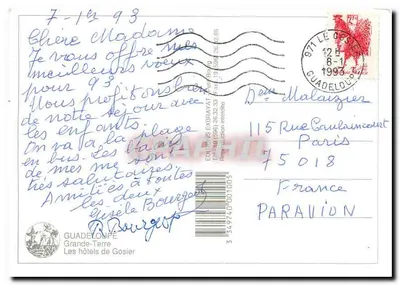 7-1er 93
Chère Madame
Je vous offre mes
meilleurs voeux
pour 93.
Nous profitons bien
de notre séjour avec
les enfants.
On va à la plage
en bus. Les bains
de mer me sont
très salutaires.
Amitiés à toutes
les deux
Gisèle Bourgeois
B. Bourgeois
GUADELOUPE
Grande-Terre
Les hôtels de Gosier
3 349740 001003
971 LE GOSIER
12 H
8-1
1993
GUADELOUPE
Malaizier
115 Rue Caulaincourt
Paris
75018
France
PARAVION